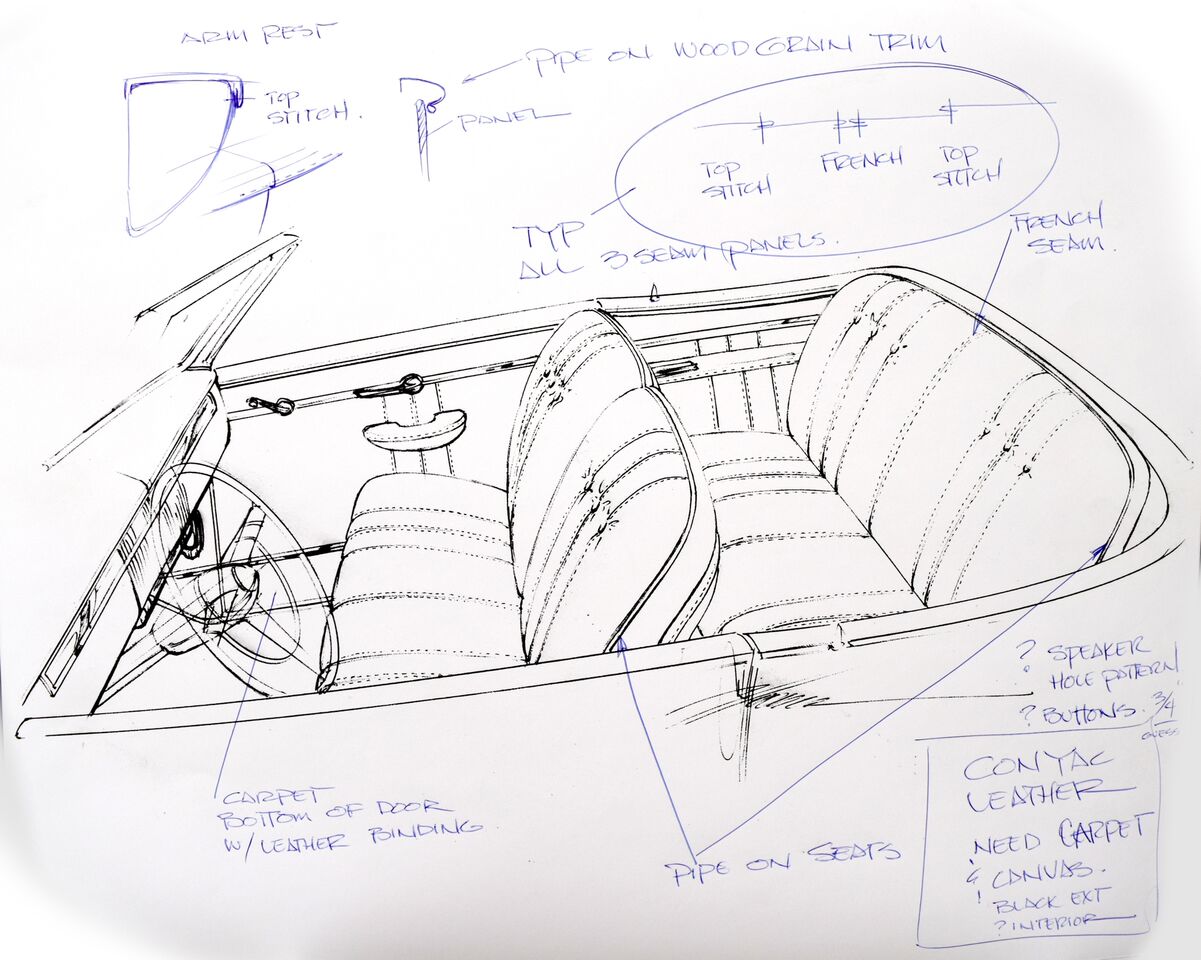 ARM REST
TOP
STITCH.
PIPE ON WOODGRAIN TRIM
PANEL
TOP
STITCH
FRENCH
TOP
STITCH
TYP
ALL 3 SEAM PANELS.
FRENCH
SEAM.
? SPEAKER
HOLE PATTERN!
? BUTTONS. 3/4
GUESS
CARPET
BOTTOM OF DOOR
W/LEATHER BINDING
PIPE ON SEATS
CONYAC
LEATHER
NEED CARPET
& CANVAS.
! BLACK EXT
? INTERIOR